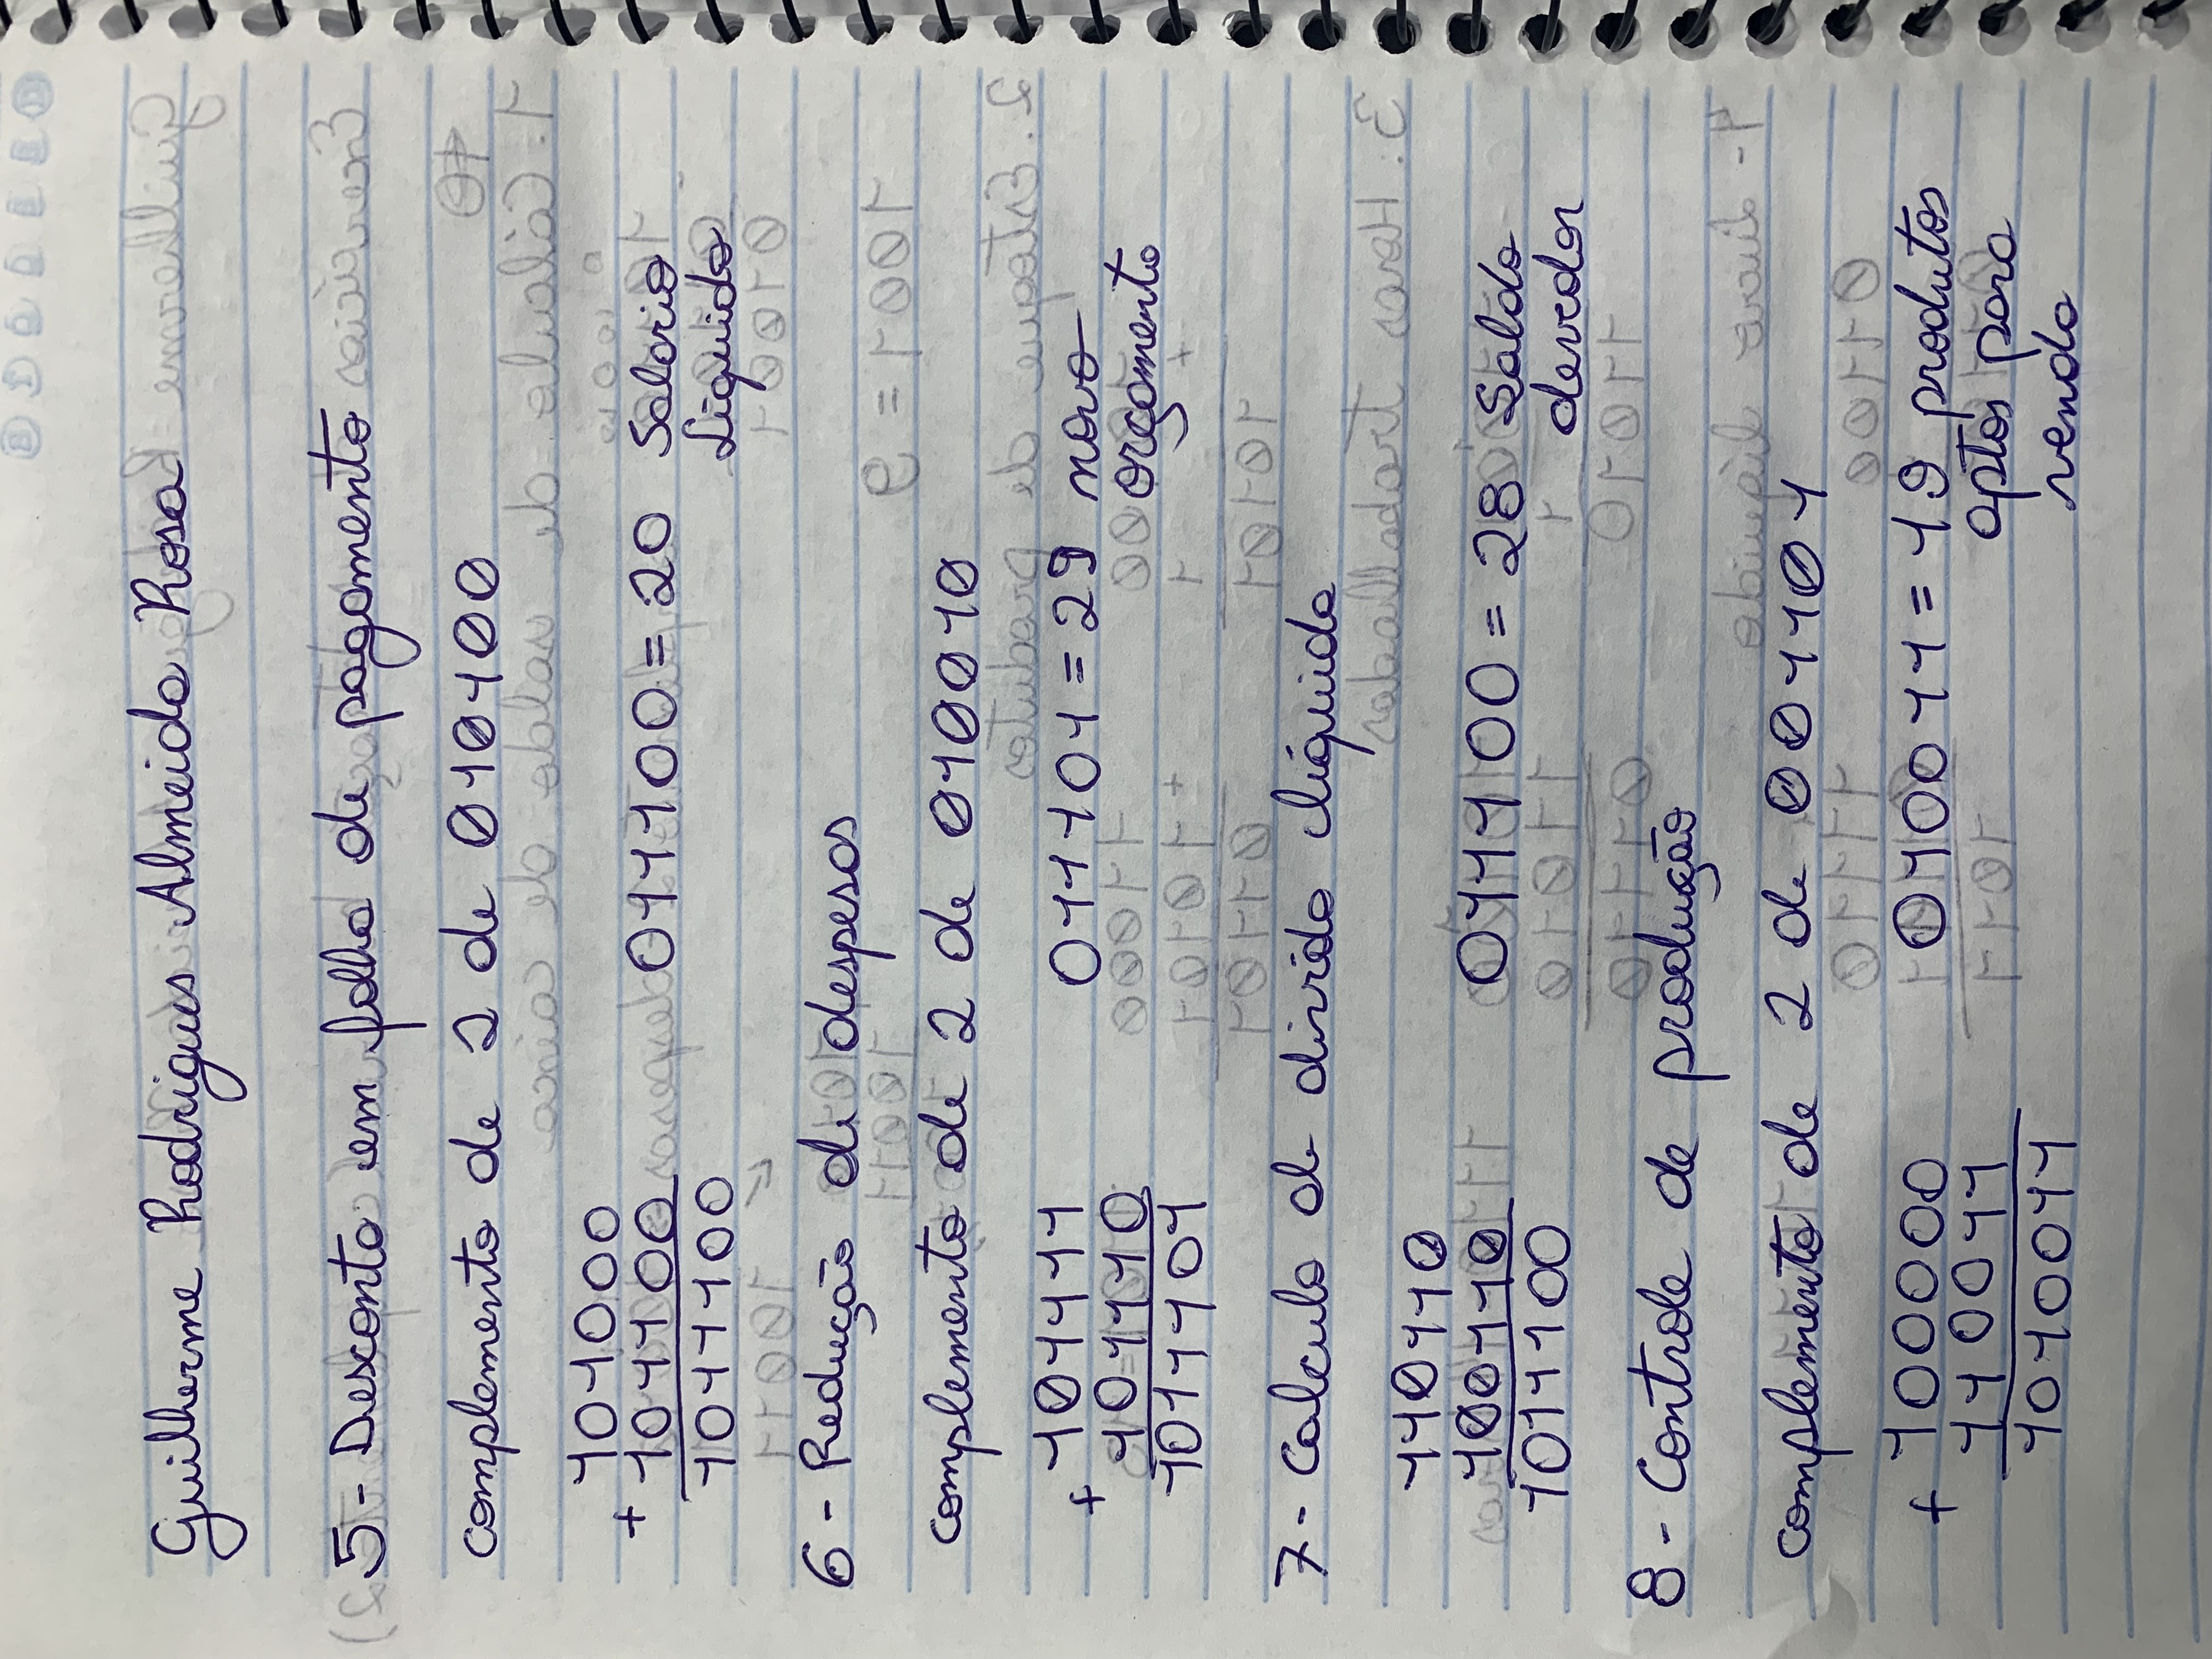 Guilherme Rodrigues Almeida Rosa
5 - Desconto em folha de pagamento
complemento de 2 de 010100
101000
+ 101100
1011100
011100 = 20 Salario
Liquido
6 - Redução de despesas
complemento de 2 de 010010
101111
+ 101110
1011101
011101 = 29 novo
orçamento
7 - Calculo de divida líquida
110110
100110
1011100
011100 = 28 Saldo
devedor
8 - Controle de produção
complemento de 2 de 001101
100000
+ 110011
1010011
010011 = 19 produtos
aptos para
venda